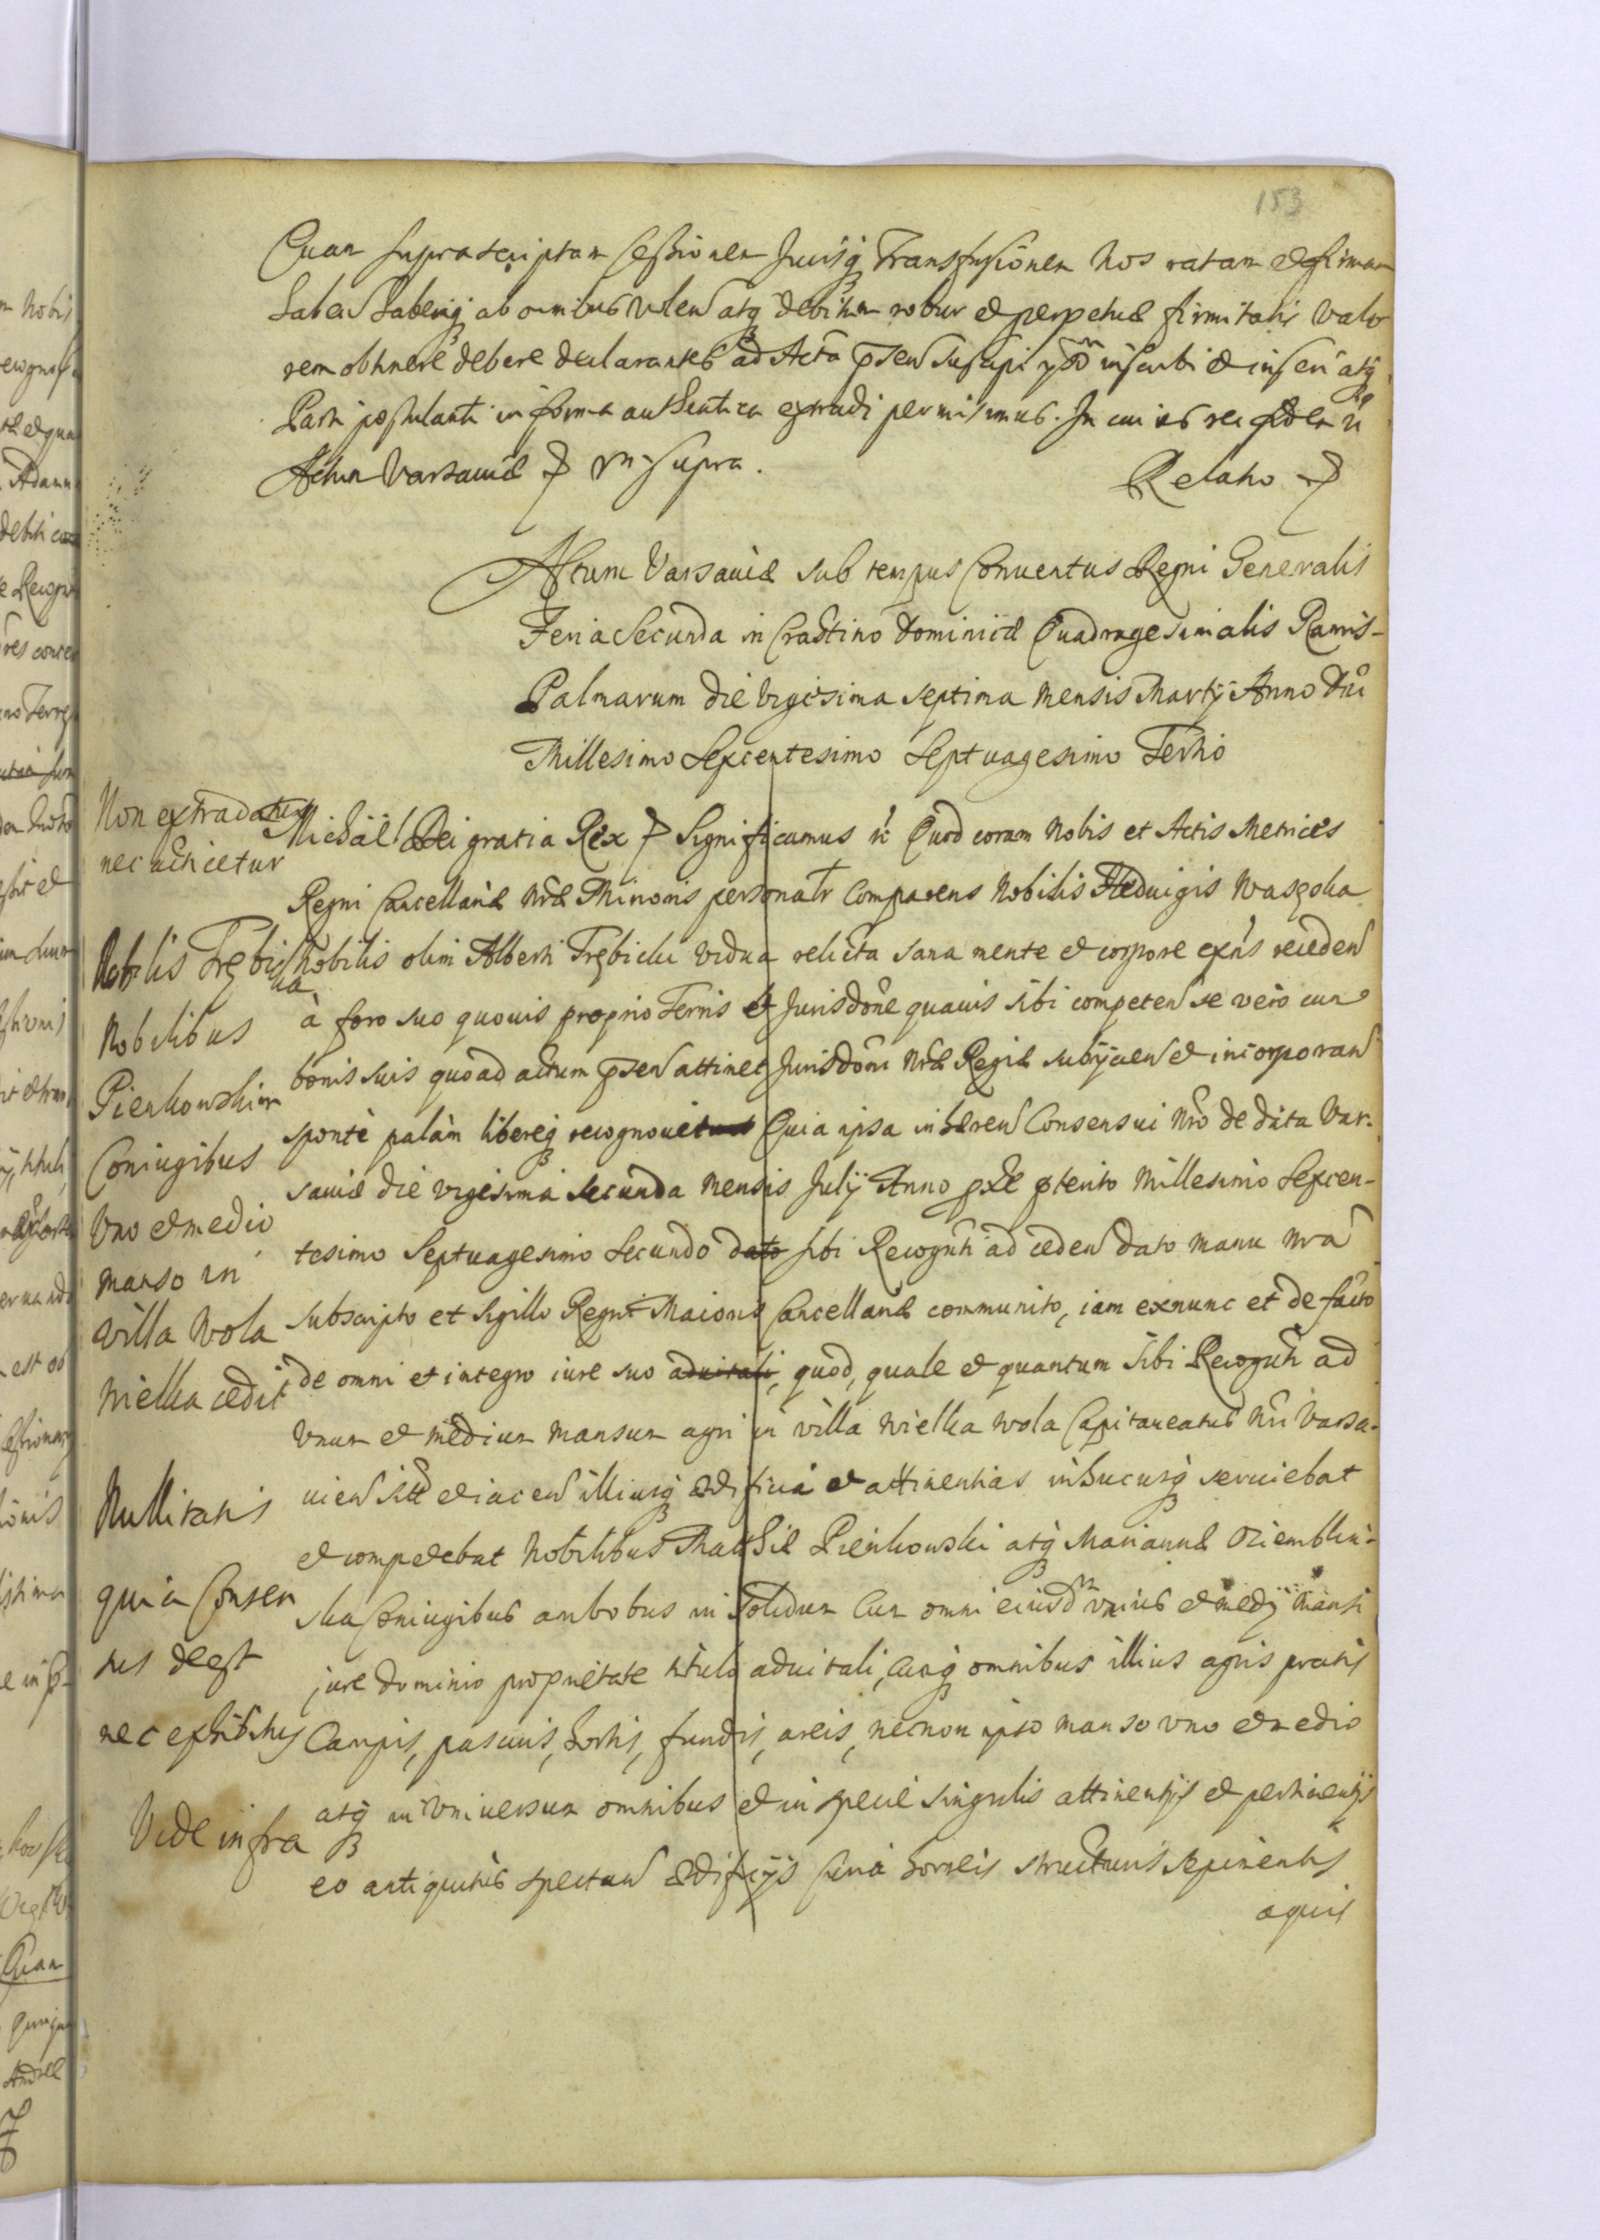 153
Quam suprascriptam Cessionem Jurisq Transfusionem Nos ratam et firmam
haben haberiq ab omnibus volen atq debitum robur et perpetuæ firmitatis valo
rem obtinere debere declarantes ad Acta pnsen suscipi ysdm inscribi et inseri atq
Parti postulanti in forma authentica extradi permisimus. In cuius rei fidem &c
Actum Varsaviæ &c ut supra.
Relatio &c
Actum Varsaviæ sub tempus Conventus Regni Generalis
Feria Secunda in Crastino Dominicæ Quadragesimalis Ramis-
Palmarum die vigesima septima mensis Martij Anno Dni
Millesimo Sexcentesimo Septuagesimo Tertio
Non extradatur
nec vidicetur
Nobilis Trębic
ka
Nobilibus
Pieńkowskim
Coniugibus
Uno et medio
manso in
villa Wola
Wielka cedit
Nullitatis
quia Consen
sus deest
nec exhibitus
Vide infra
Michaël Dei gratia Rex &c Significamus &c Quod coram Nobis et Actis Metrices
Regni Cancellariæ Nræ Minoris personalr Comparens Nobilis Hedvigis Waszoka
Nobilis olim Alberti Trębicki vidua relicta sana mente et corpore exns receden
à foro suo quovis proprio Terris et Jurisdone quavis sibi competen se vero cum
bonis suis quoad actum pnsen attinet Jurisdoni Nræ Regiæ subijcien et incorporan
sponte palàm libereq recognovit Quia ipsa inhæren Consensui Nro de data Var-
saviæ die vigesima secunda mensis Julij Anno pxe pterito Millesimo Sexcen-
tesimo Septuagesimo Secundo dato sibi Recognti ad ceden dato manu Nra
subscripto et Sigillo Regni Maioris Cancellariæ communito, iam exnunc et de facto
de omni et integro iure suo advitali, quod, quale et quantum sibi Recognti ad
unum et medium mansum agri in villa Wielka Wola Capitaneatus Nri Varsa-
vien sitt et iacen illiusq ædificia et attinentias inhucusq serviebat
et competebat Nobilibus Matthiæ Pieńkowski atq Mariannæ Oziemblin-
ska Coniugibus ambobus in solidum Cum omni eiusdm unius et medij mansi
iure dominio proprietate titulo advitali, Cumq omnibus illius agris pratis
Campis, pascuis, hortis, fundis, areis, necnon ipso manso uno et medio
atq in universum omnibus et in specie singulis attinentijs et pertinentijs
eo antiquitus spectan ædificijs Curia horreis structuris sepimentis
aquis